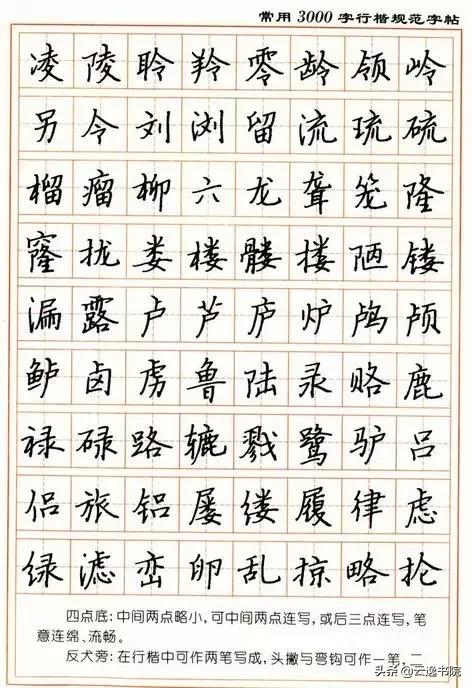 常用3000字行楷规范字帖
凌陵聆羚零龄领岭
另令刘浏留流琉硫
榴瘤柳六龙聋笼隆
窿拢娄楼髅搂陋镂
漏露卢芦庐炉鸬颅
鲈卤虏鲁陆录赂鹿
禄碌路辘戮鹭驴吕
侣旅铝屡缕履律虑
绿滤峦卵乱掠略抡
四点底:中间两点略小,可中间两点连写,或后三点连写,笔
意连绵、流畅。
反犬旁:在行楷中可作两笔写成,头撇与弯钩可作一笔,二
头条@云逸书院